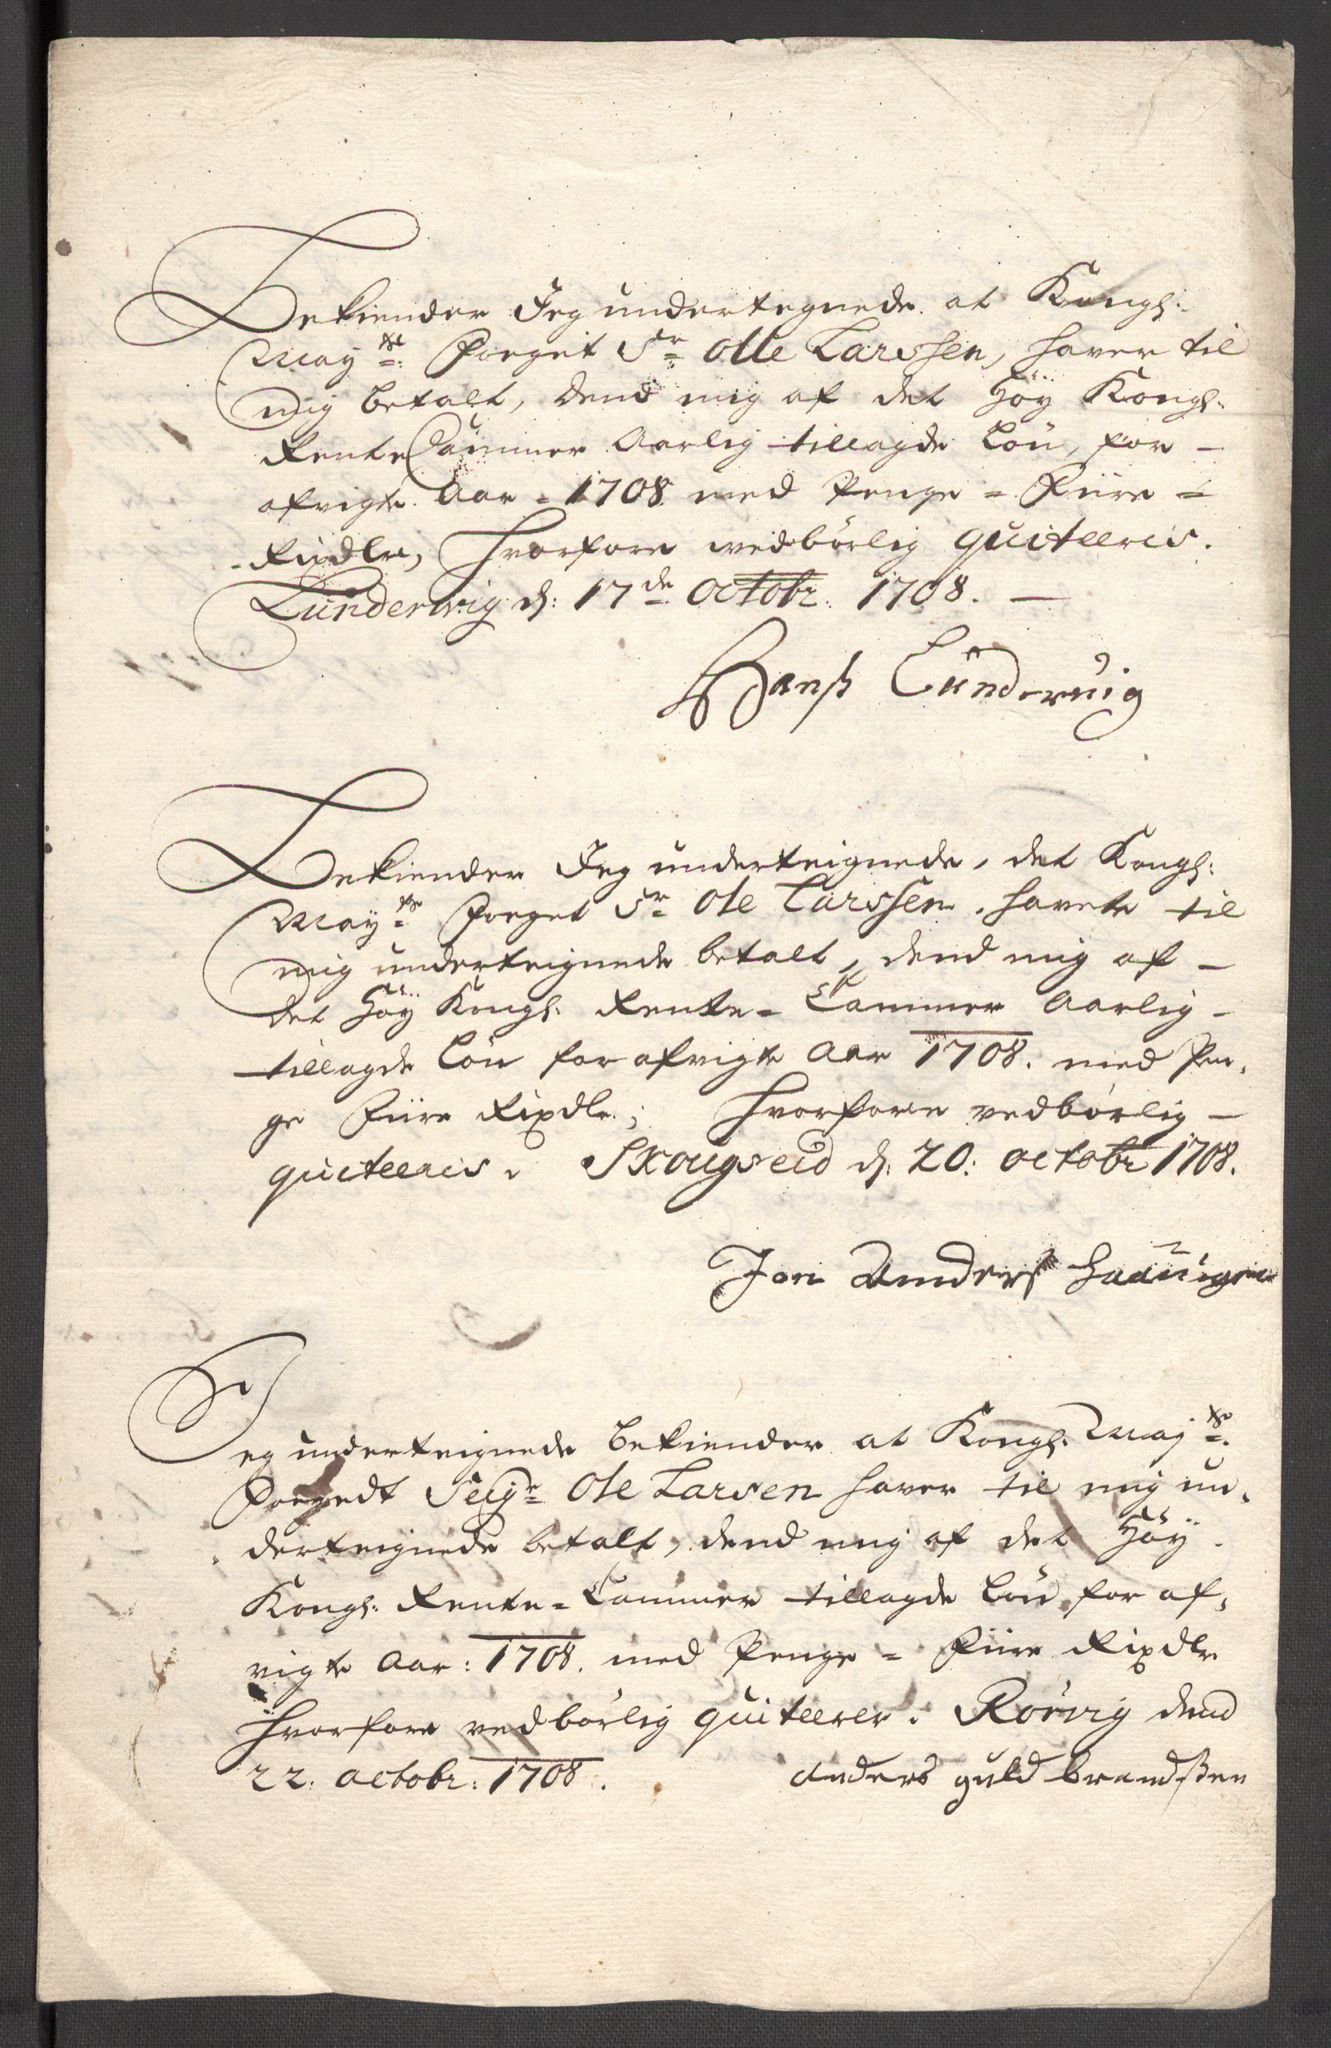 Bekiender Jeg undertegnede at Kongl:
Mayts: Foeget Sr Olle Larssen, haver til
mig betalt, dend mig af det Höy Kongl:
Rente Cammer Aarlig tillagde Lön, for -
afvigte Aar - 1708 med Penge - Fiire -
- Rixdlr, hvorfore wedbörlig quiteeris.
Lundervig d: 17de octobr: 1708. -
Hanß Lünderuig
Bekiender Jeg underteignede, det Kongl:
Mayts Foeget Sr Ole Larssen, hafver til
mig underteignede betalt, dend mig af -
det Höy Kongl: Rente- Cammer Aarlig -
tillagde Lön for afvigte Aar 1708. med Pen,
ge Fiire Rixdlr; hvorforre vedbörlig -
quiteeris. Skougseid d: 20: octobr 1708.
Jon Anderß
Jeg underteignede bekiender at Kongl: Majts:
Foegedt Seigr Ole Larsen haver til mig un,
derteignede betalt, dend mig af det Höy
Kongl: Rente-Cammer tillagde Lön for af,
vigte Aar: 1708. med Penge - Fiire Rixdlr
hvorfore vedbörlig quiteerer. Rörvig dend
22: octobr: 1708. anders guldbrandßen